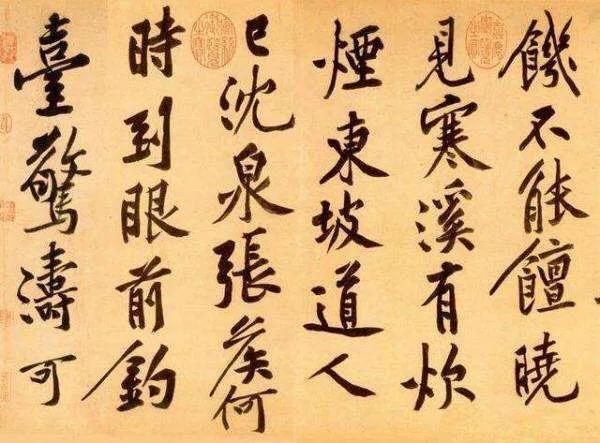 饑不能饘曉
見寒溪有炊
煙東坡道人
已沈泉張侯何
時到眼前釣
臺驚濤可